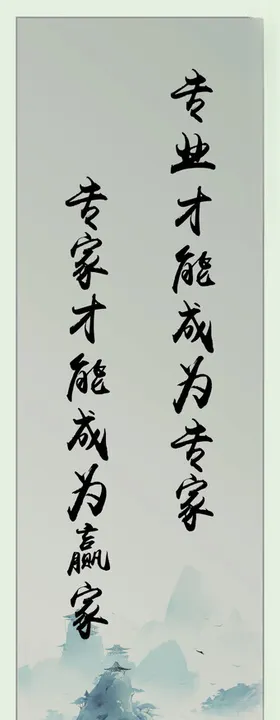 专业才能成为专家
专家才能成为赢家